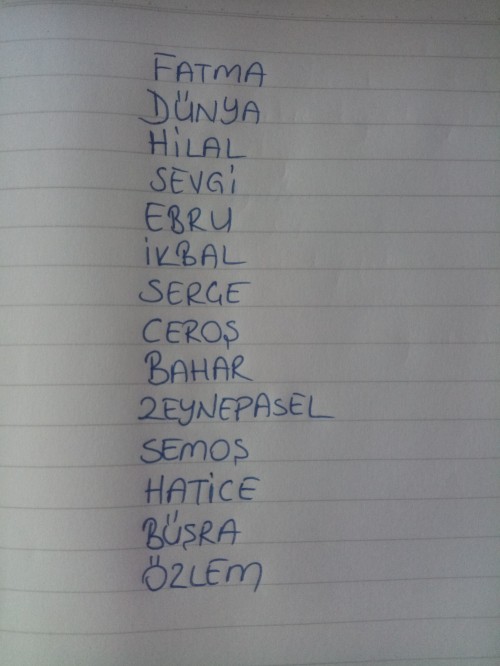 FATMA
DÜNYA
HİLAL
SEVGİ
EBRU
İKBAL
SERGE
CEROŞ
BAHAR
ZEYNEPASEL
SEMOŞ
HATİCE
BÜŞRA
ÖZLEM